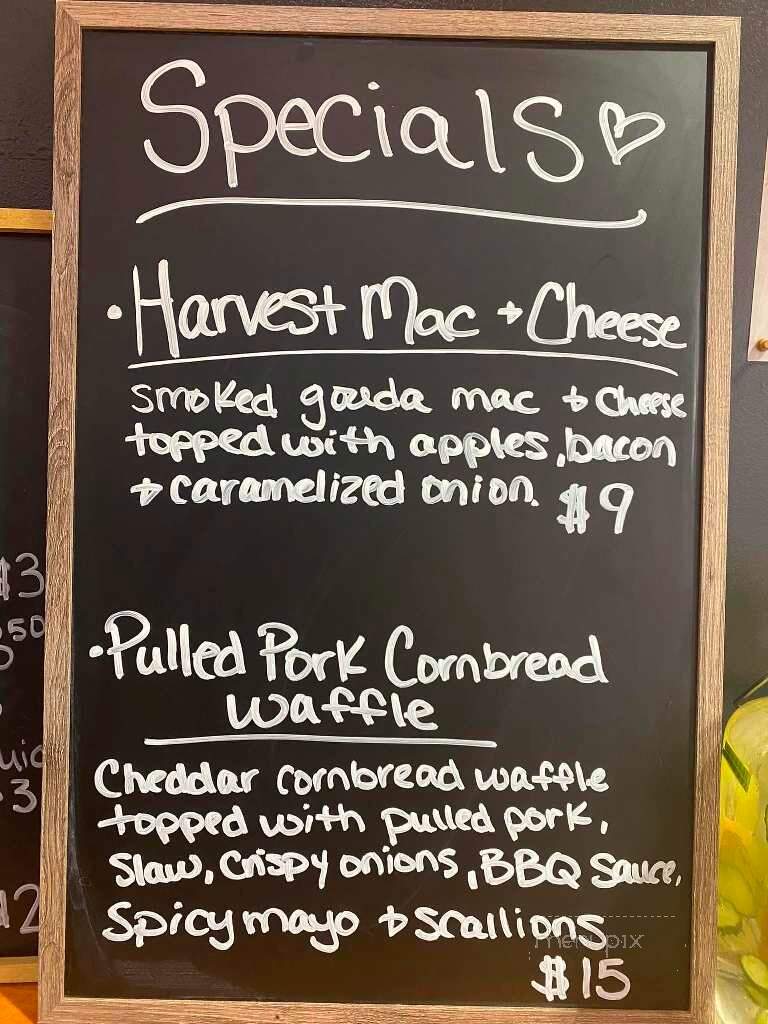 Specials
• Harvest Mac + Cheese
smoked gouda mac + cheese
topped with apples, bacon
+ caramelized onion. $9
• Pulled Pork Cornbread
waffle
Cheddar cornbread waffle
topped with pulled pork,
slaw, crispy onions, BBQ sauce,
spicy mayo + scallions
menupix
$15
$3
50
3
12